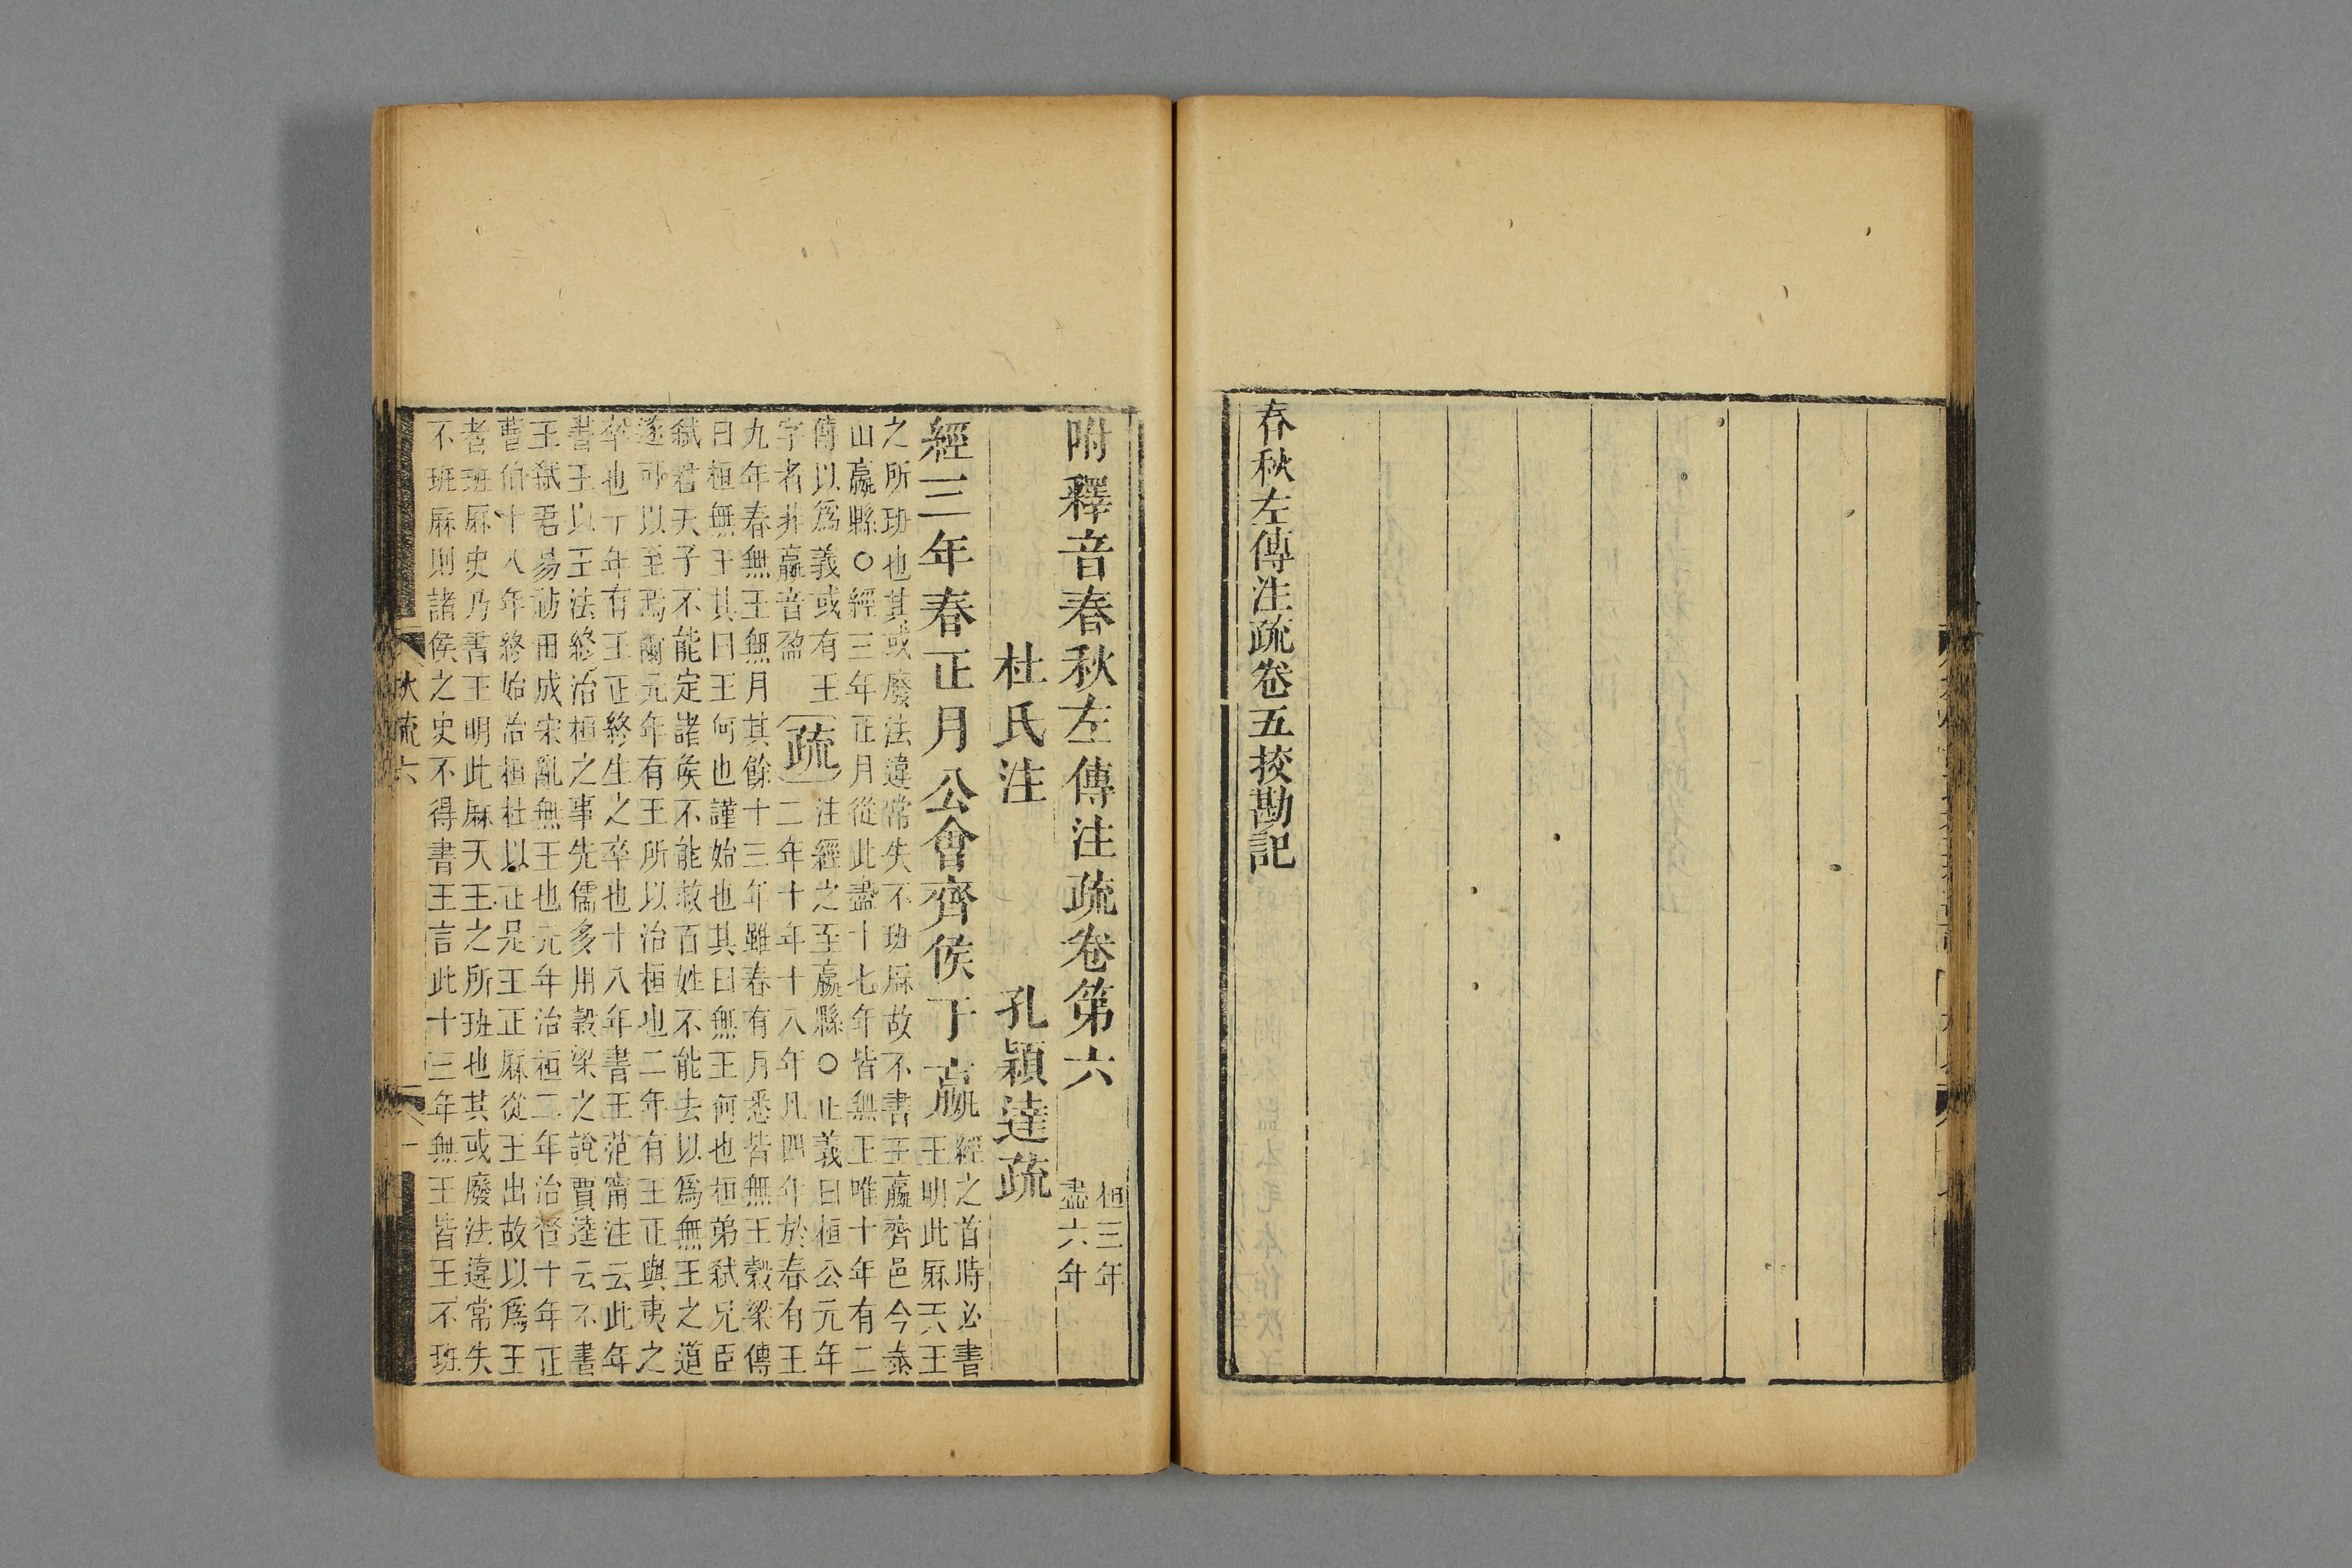 春秋左傳注疏卷五挍勘記
附釋音春秋左傳注疏卷第六
桓三年
盡六年
杜氏注 孔穎達疏
經三年春正月公會齊侯于嬴
經之首時必書
王明此厤天王
之所班也其或廢法違常失不班厤故不書王嬴齊邑今泰
山嬴縣○經三年正月從此盡十七年皆無王唯十年有二
傳以爲義或有王
字者非嬴音盈
疏
注經之至嬴縣○正義曰桓公元年
二年十年十八年凡四年於春有王
九年春無王無月其餘十三年雖春有月悉皆無王穀梁傳
曰桓無王其曰王何也謹始也其曰無王何也桓弟弑兄臣
弑君天子不能定諸侯不能救百姓不能去以爲無王之道
遂可以至焉爾元年有王所以治桓也二年有王正與夷之
卒也十年有王正終生之卒也十八年書王范甯注云此年
書王以王法終治桓之事先儒多用穀梁之說賈逵云不書
王弑君易祊田成宋亂無王也元年治桓二年治督十年正
曹伯十八年終始治桓杜以正是王正厤從王出故以爲王
者班厤史乃書王明此厤天王之所班也其或廢法違常失
不班厤則諸侯之史不得書王言此十三年無王皆王不班
秋疏六 一